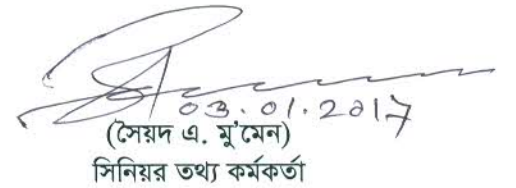 03.01.2017
(সৈয়দ এ. মু'মেন)
সিনিয়র তথ্য কর্মকর্তা